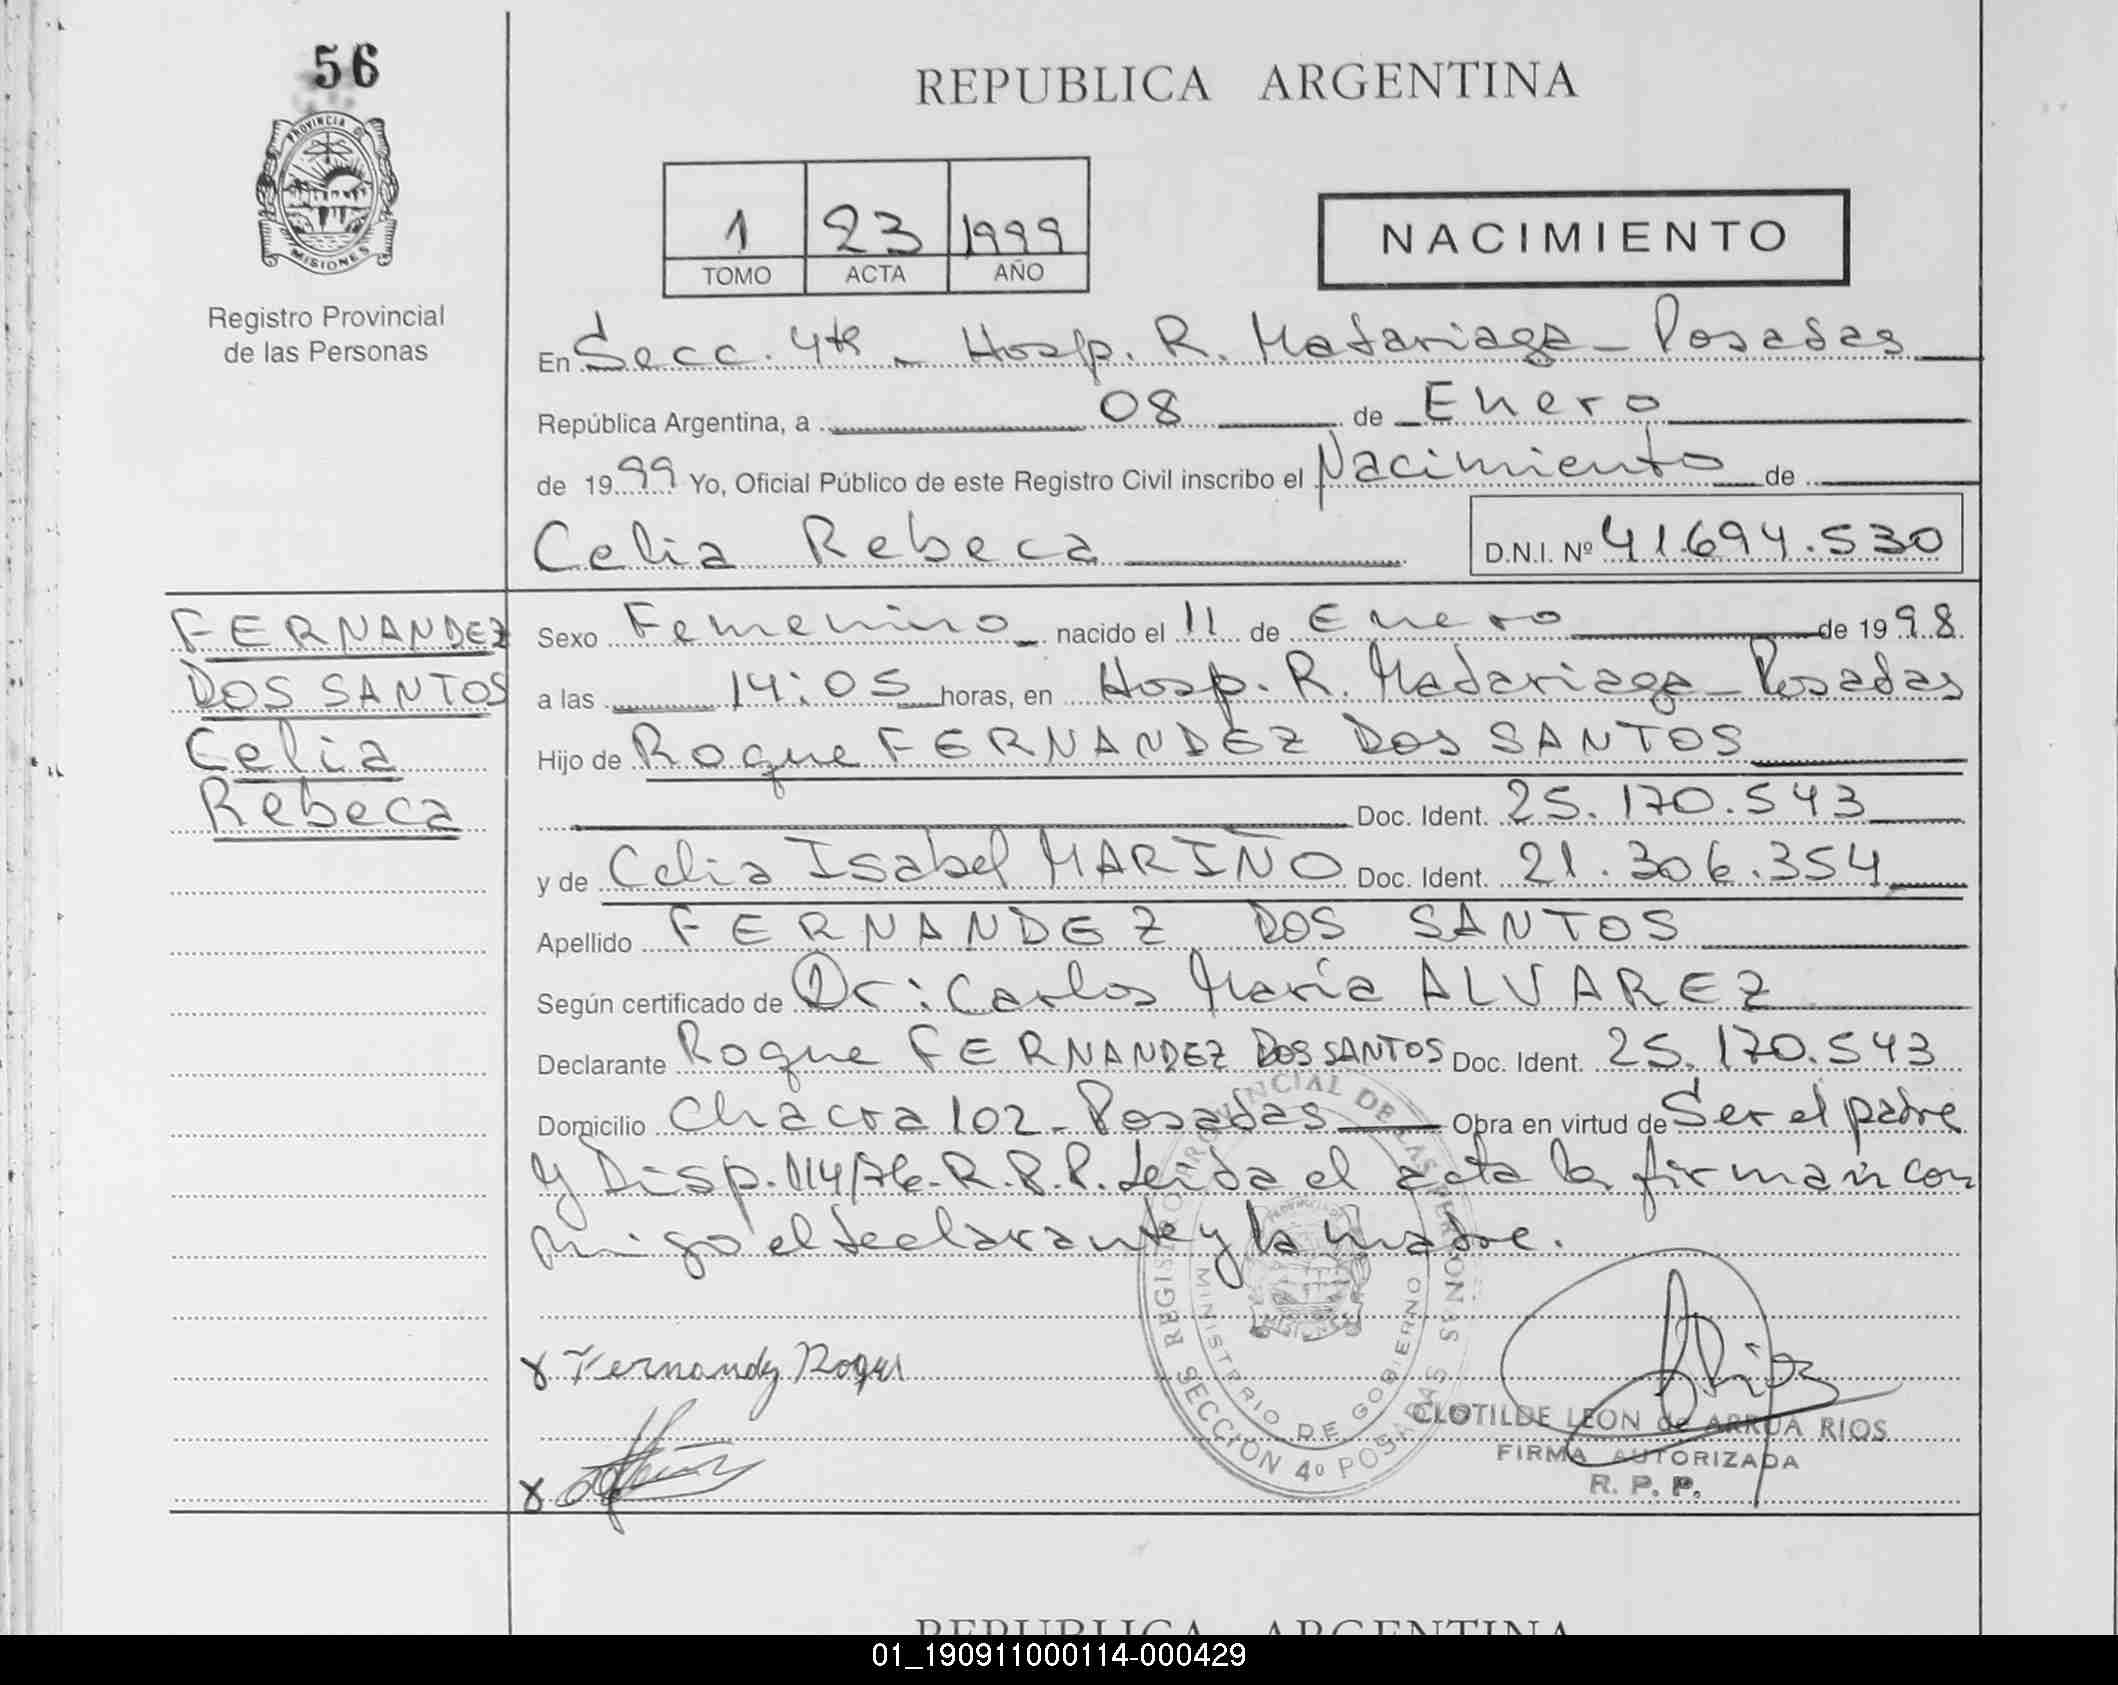 56
PROVINCIA DE
MISIONES
Registro Provincial
de las Personas
REPUBLICA ARGENTINA
1 23 1999
TOMO ACTA AÑO
NACIMIENTO
En Secc. 4ta - Hosp. R. Madariaga - Posadas
República Argentina, a 08 de Enero
de 1999 Yo, Oficial Público de este Registro Civil inscribo el Nacimiento de
Celia Rebeca D.N.I. Nº 41.694.530
FERNANDEZ
DOS SANTOS
Celia
Rebeca
Sexo Femenino nacido el 11 de Enero de 1998
a las 14:05 horas, en Hosp. R. Madariaga - Posadas
Hijo de Roque FERNANDEZ DOS SANTOS
Doc. Ident. 25.170.543
y de Celia Isabel MARIÑO Doc. Ident. 21.306.354
Apellido FERNANDEZ DOS SANTOS
Según certificado de Dr: Carlos María ALVAREZ
Declarante Roque FERNANDEZ DOS SANTOS Doc. Ident. 25.170.543
Domicilio Chacra 102 - Posadas Obra en virtud de Ser el padre
y Disp. 114/76 - R.P.P. Leída el acta la firman con
migo el declarante y la madre.
REGISTRO PROVINCIAL DE LAS PERSONAS
MINISTERIO DE GOBIERNO
SECCION 4º POSADAS
MISIONES
x Fernandz Roque
x
CLOTILDE LEON de ARRUA RIOS
FIRMA AUTORIZADA
R. P. P.
REPUBLICA ARGENTINA
01_190911000114-000429